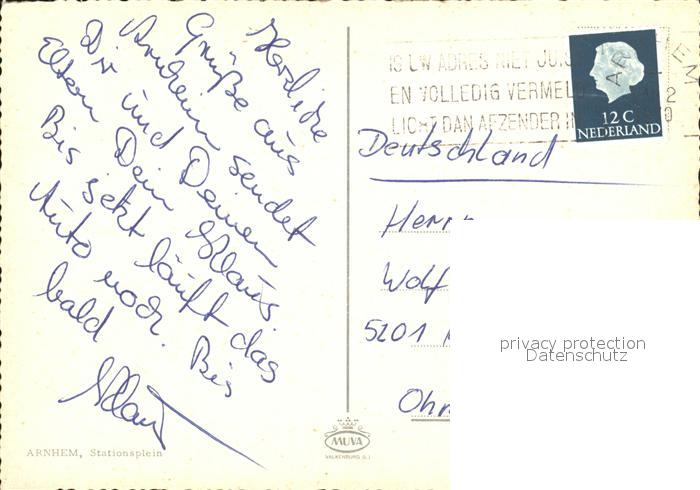 Herzliche
Grüße aus
Arnheim sendet
Dir und Deinen
Eltern Dein Klaus.
Bis jetzt läuft das
Auto noch. Bis
bald
Klaus
ARNHEM, Stationsplein
MUVA
VALKENBURG (L.)
IS UW ADRES NIET JUIS
EN VOLLEDIG VERMELD
LICHT DAN AFZENDER IN
12 C
NEDERLAND
Deutschland
Herrn
Wolf
5201
privacy protection
Datenschutz